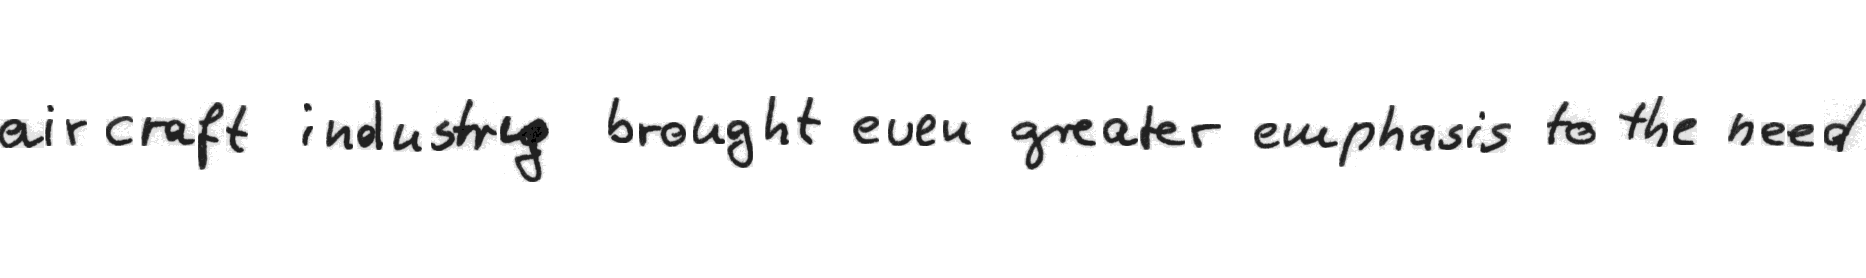 aircraft industry brought even greater emphasis to the need